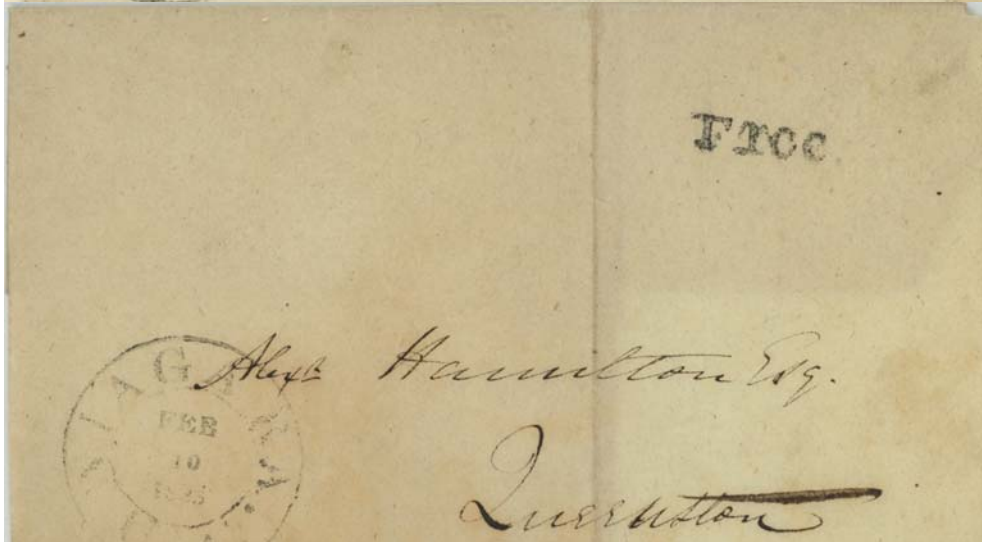 Free
Alexr Hamilton Esq.
Queenston
NIAGARA
FEB
10